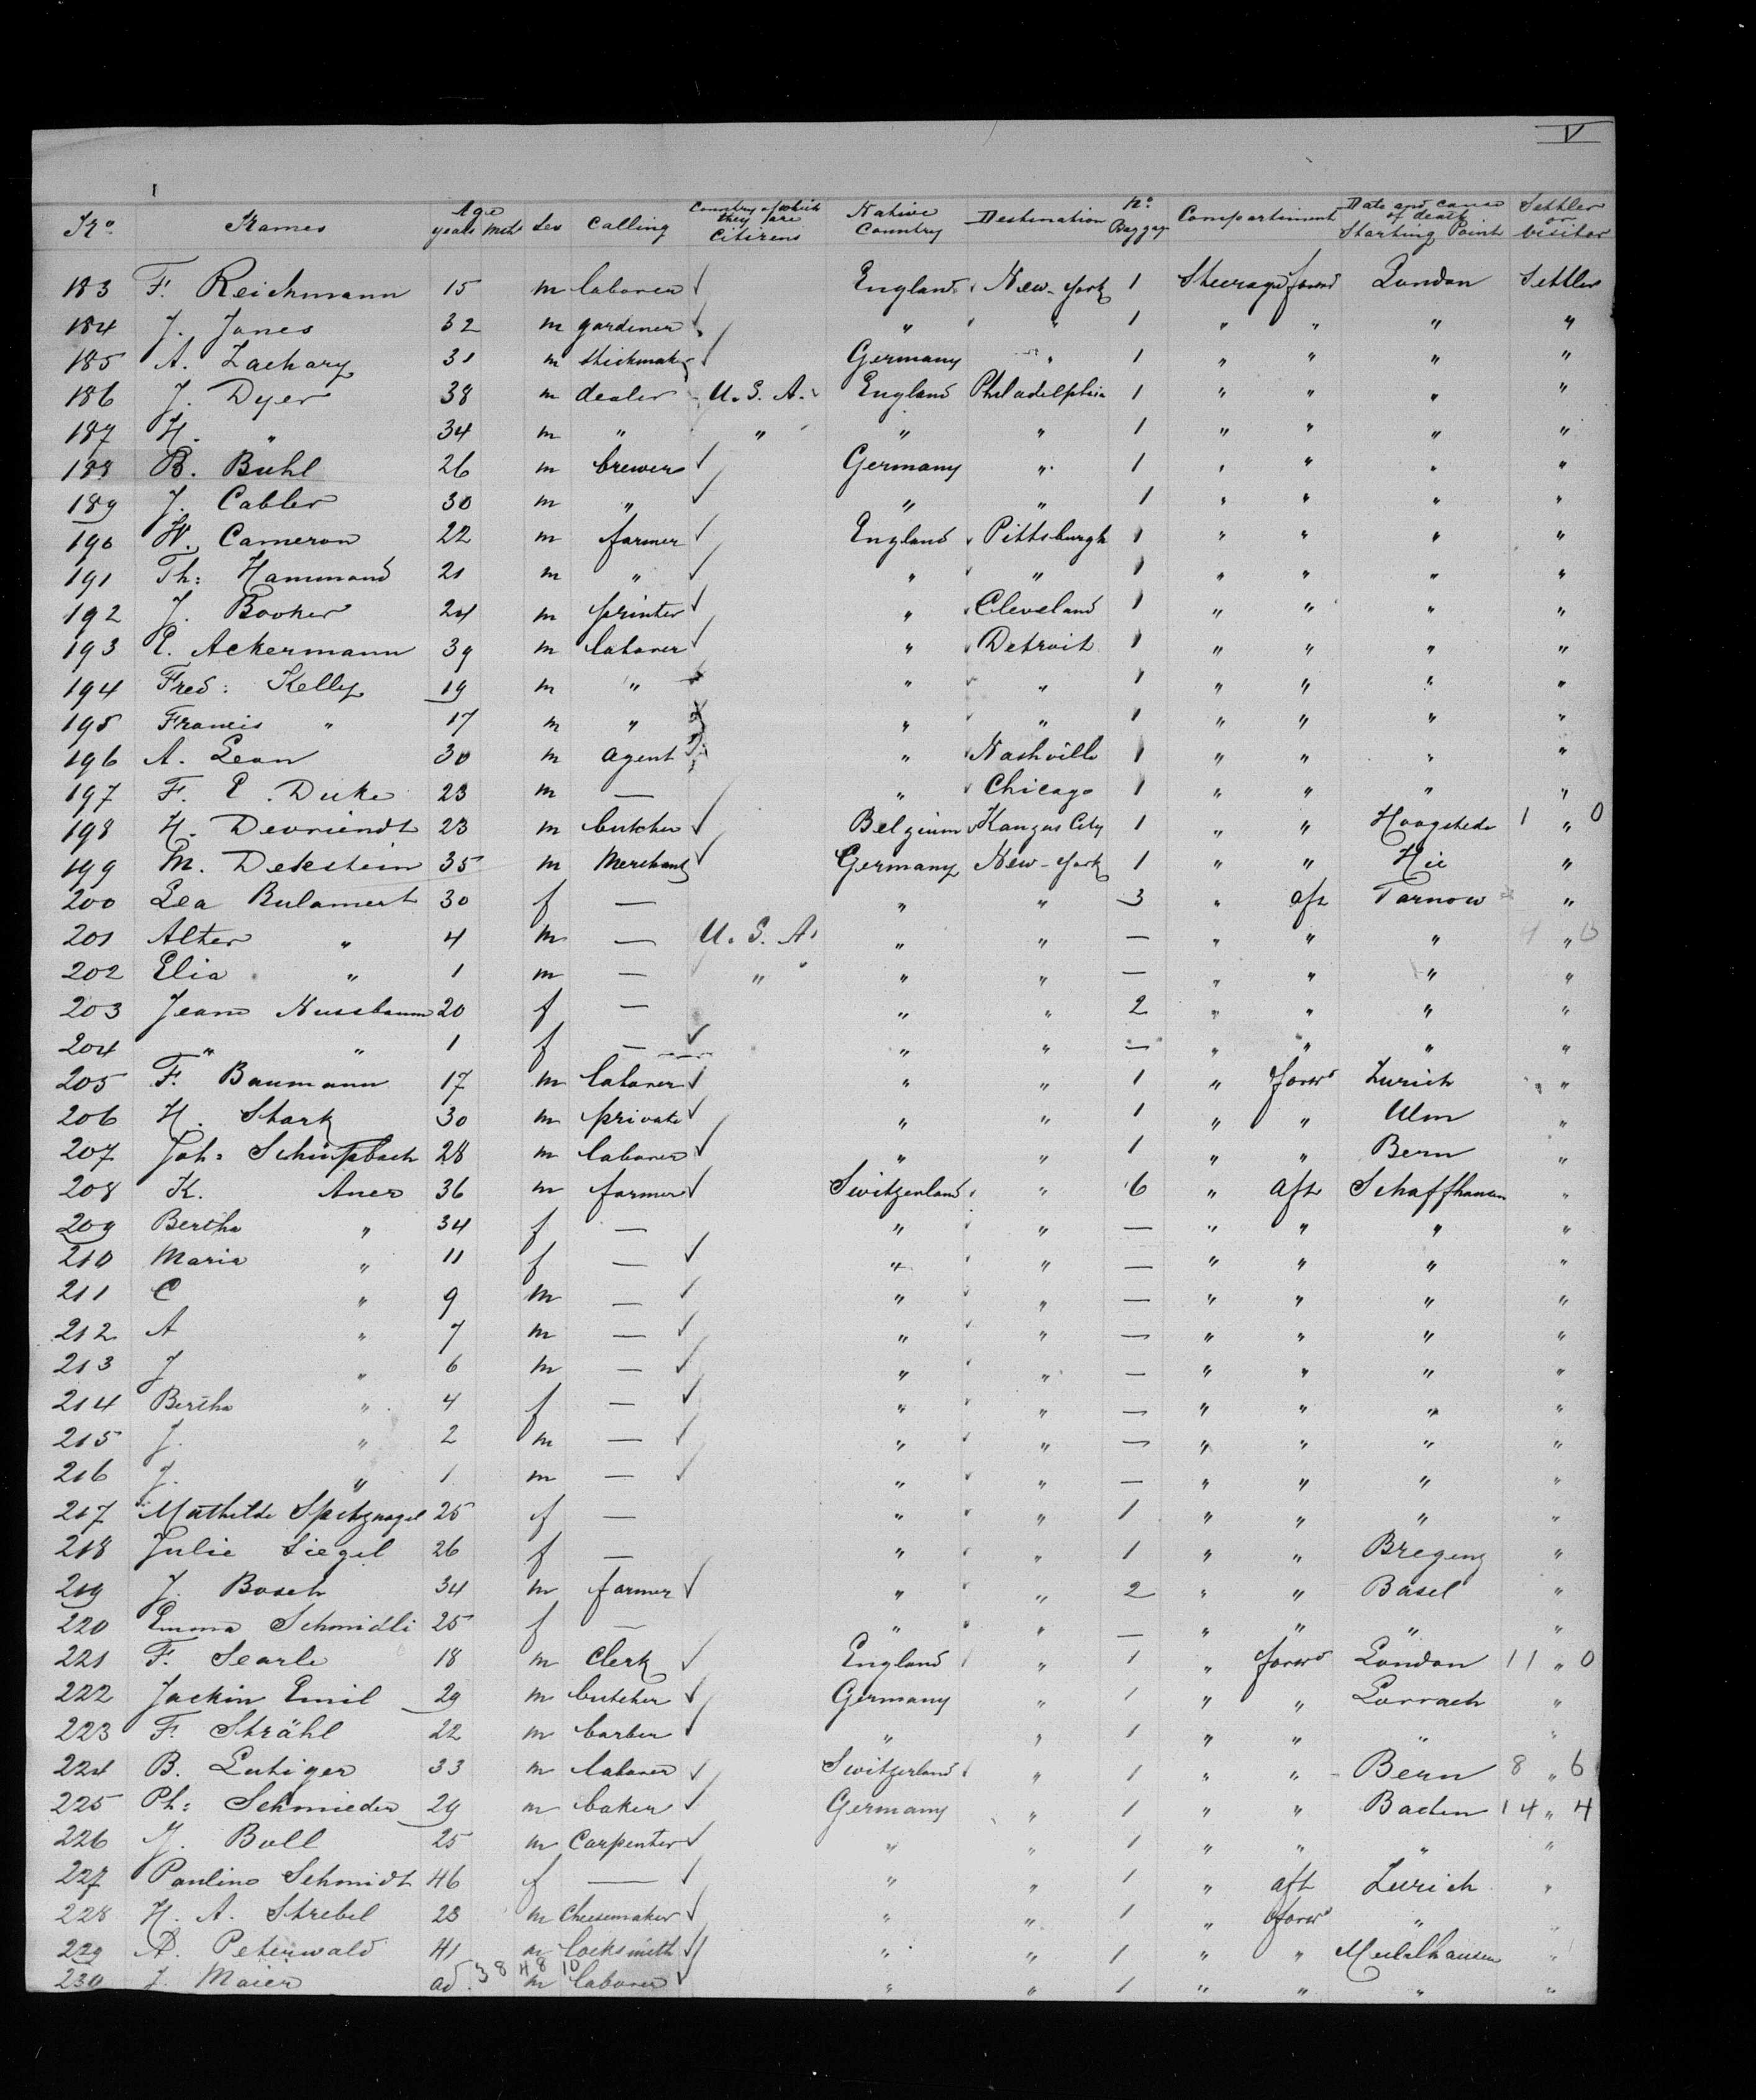 V
No Names Age years Mths Sex Calling Country of which they are Citizens Native Country Destination No Baggage Compartiment Date and cause of death Starting Point Settler or Visitor
183 F. Reichmann 15 m laborer England New-York 1 Steerage forwd London Settler
184 J. Jones 32 m gardener " " 1 " " " "
185 A. Zachary 31 m stickmaker Germany " 1 " " " "
186 J. Dyer 38 m dealer U. S. A. England Philadelphia 1 " " " "
187 H. " 34 m " " " " 1 " " " "
188 B. Buhl 26 m brewer Germany " 1 " " " "
189 J. Cabler 30 m " " " 1 " " " "
190 W. Cameron 22 m farmer England Pittsburgh 1 " " " "
191 Th: Hammond 21 m " " " 1 " " " "
192 J. Booker 24 m printer " Cleveland 1 " " " "
193 E. Ackermann 39 m laborer " Detroit 1 " " " "
194 Fred: Kelly 19 m " " " 1 " " " "
195 Francis " 17 m " " " 1 " " " "
196 A. Leon 30 m agent " Nashville 1 " " " "
197 F. E. Duke 23 m — " Chicago 1 " " " "
198 H. Devriendt 23 m butcher Belgium Kanzas City 1 " " Hoogstede 1 " 0
199 M. Dekstein 35 m Merchant Germany New-York 1 " " "
200 Lea Bulamert 30 f — " " 3 " aft Tarnow "
201 Alter " 4 m — U. S. A. " " — " " " 4 " 0
202 Elia " 1 m — " " " — " " " "
203 Jeans Nussbaum 20 f — " " 2 " " " "
204 " " 1 f — " " — " " " "
205 F. Baumann 17 m laborer " " 1 " forwd Zurich "
206 H. Stark 30 m private " " 1 " " Ulm "
207 Joh: Schüpbach 28 m laborer " " 1 " " Bern "
208 K. Auer 36 m farmer Switzerland " 6 " aft Schaffhausen "
209 Bertha " 34 f — " " — " " " "
210 Maria " 11 f — " " — " " " "
211 C " 9 m — " " — " " " "
212 A " 7 m — " " — " " " "
213 J " 6 m — " " — " " " "
214 Bertha " 4 f — " " — " " " "
215 J. " 2 m — " " — " " " "
216 J. " 1 m — " " — " " " "
217 Mathilde Spitznagel 25 f — " " 1 " " " "
218 Julie Siegel 26 f — " " 1 " " Bregenz "
219 J. Bosch 34 m farmer " " 2 " " Basel "
220 Emma Schmidli 25 f — " " — " " " "
221 F. Searle 18 m Clerk England " 1 " forwd London 11 " 0
222 Jackin Emil 29 m butcher Germany " 1 " " Lorrach "
223 F. Strähl 22 m barber " " 1 " " " "
224 B. Lutiger 33 m laborer Switzerland " 1 " " Bern 8 " 6
225 Ph: Schmieder 29 m baker Germany " 1 " " Baden 14 " 4
226 J. Boll 25 m Carpenter " " 1 " " " "
227 Pauline Schmidt 46 f — " " 1 " aft Zurich "
228 H. A. Strebel 23 m Cheesemaker " " 1 " forwd " "
229 A. Peterwald 41 m locksmith " " 1 " " Muhlhausen "
230 J. Maier ad. 38 48 10 m laborer " " 1 " " " "